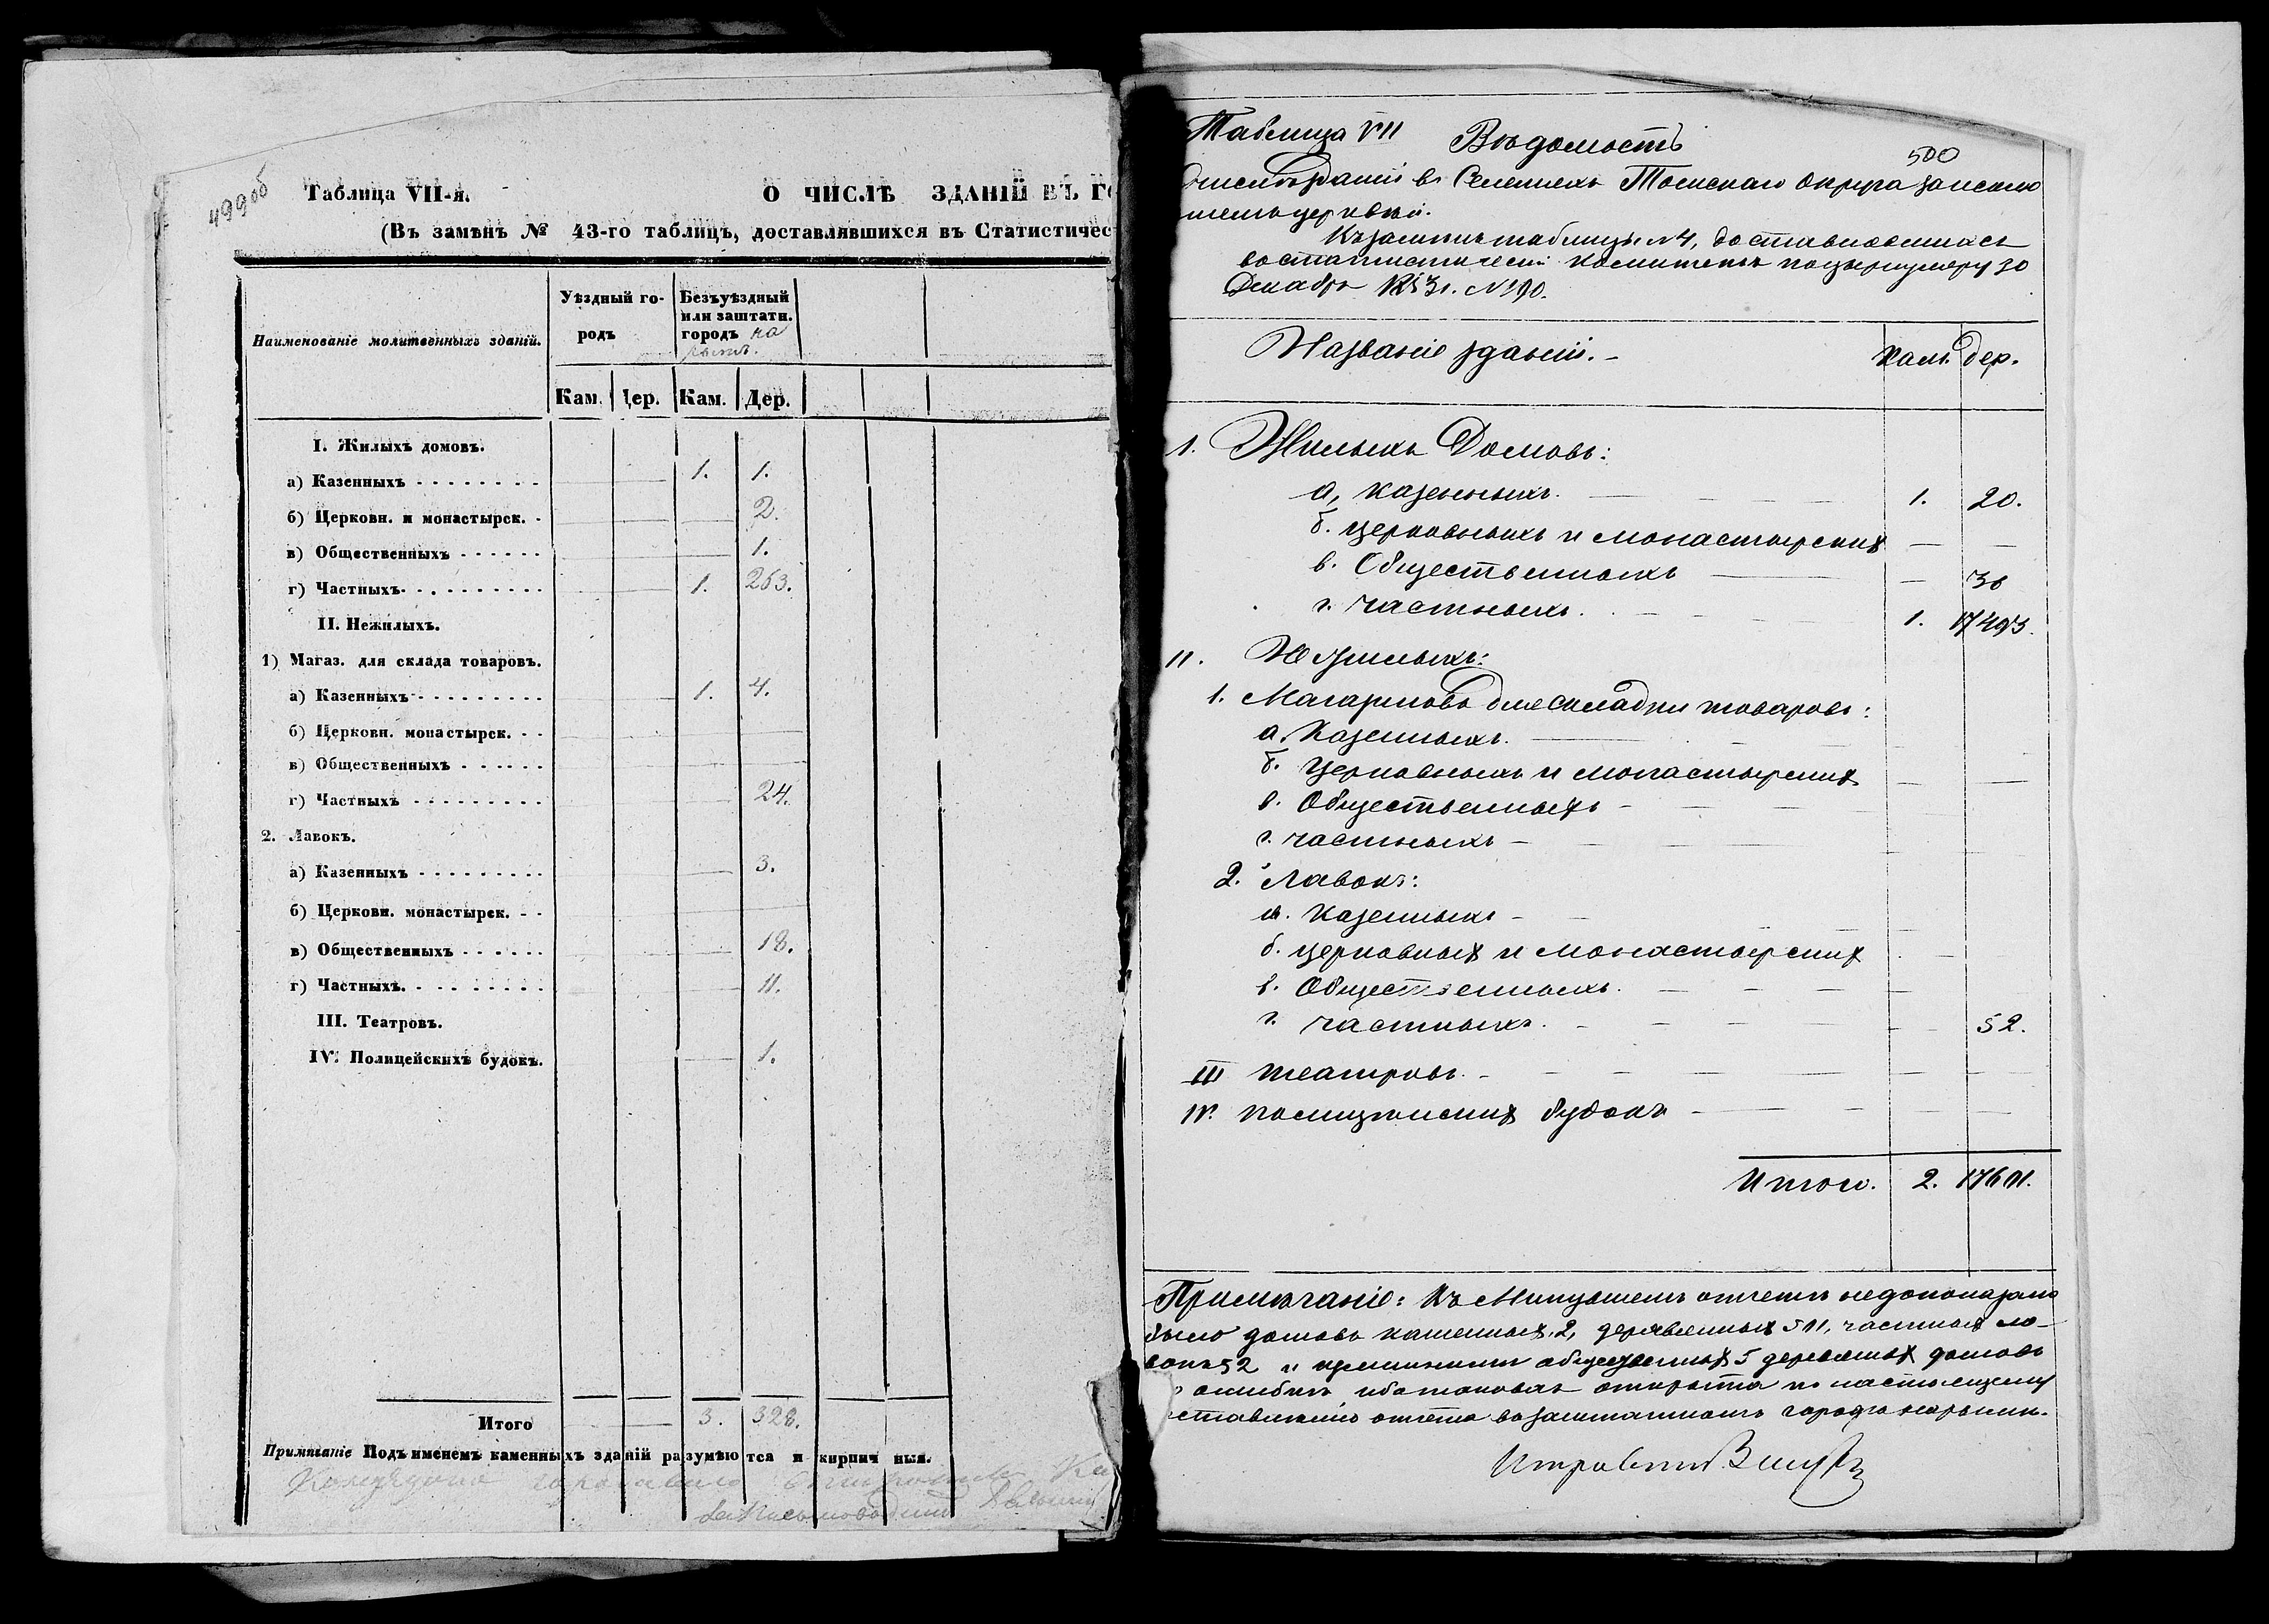 499об
Таблица VII-я.
О ЧИСЛѢ ЗДАНІЙ ВЪ ГО
(Въ замѣнъ № 43-го таблицъ, доставлявшихся въ Статистичес
Наименованіе молитвенныхъ зданій.
Уѣздный го-
родъ
Безъуѣздный
или заштатн.
городъ На
рымъ.
Кам. Дер. Кам. Дер.
I. Жилыхъ домовъ.
а) Казенныхъ 1. 1.
б) Церковн. и монастырск. 2.
в) Общественныхъ 1.
г) Частныхъ 1. 263.
II. Нежилыхъ.
1) Магаз. для склада товаровъ.
а) Казенныхъ 1. 4.
б) Церковн. монастырск.
в) Общественныхъ
г) Частныхъ 24.
2. Лавокъ.
а) Казенныхъ 3.
б) Церковн. монастырск.
в) Общественныхъ 18.
г) Частныхъ. 11.
III. Театровъ.
IV. Полицейскихъ будокъ. 1.
Итого 3. 328.
Примѣчаніе Подъ именемъ каменныхъ зданій разумѣются и кирпичныя.
500
Таблица VII Вѣдомость
О числѣ зданій въ Селеніяхъ Томскаго Округа за исклю
ченіемъ церквей.
Въ замѣнъ таблицы № 4, доставлявшихся
въ статистическій комитетъ по циркуляру 30
Декабря 1853 г. № 190.
Названіе зданій. Кам. дер.
I. Жилыхъ Домовъ:
а, казенныхъ. 1. 20.
б. церковныхъ и монастырскихъ — —
в. Общественныхъ — 36
г. частныхъ. 1. 17493.
II. Нежилыхъ:
1. Магазиновъ для складки товаровъ:
а. Казенныхъ.
б. Церковныхъ и монастырскихъ
в. Общественныхъ
г. частныхъ
2. Лавокъ:
а. Казенныхъ
б. церковныхъ и монастырскихъ
в. Общественныхъ.
г. частныхъ. 52.
III театровъ.
IV. полицейскихъ будокъ
Итого. 2. 17601.
Примѣчаніе: Въ Минувшемъ отчетѣ недопоказано
было домовъ каменныхъ 2, деревянныхъ 511, частныхъ ла-
вокъ 52 и общественныхъ 5 деревянныхъ домовъ
ошибкѣ открыта по настоящему
отчета въ заштатномъ городѣ Нарымѣ.